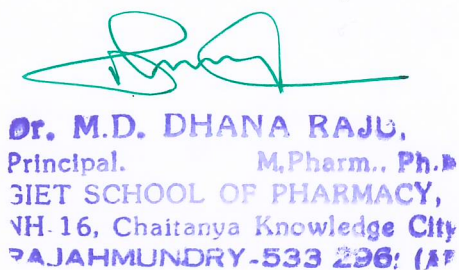 Dr. M.D. DHANA RAJU,
Principal. M.Pharm., Ph.D
GIET SCHOOL OF PHARMACY,
NH-16, Chaitanya Knowledge City
RAJAHMUNDRY-533 296: (AP